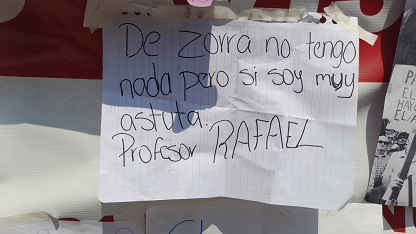 De zorra no tengo
nada pero si soy muy
astuta.
Profesor RAFAEL